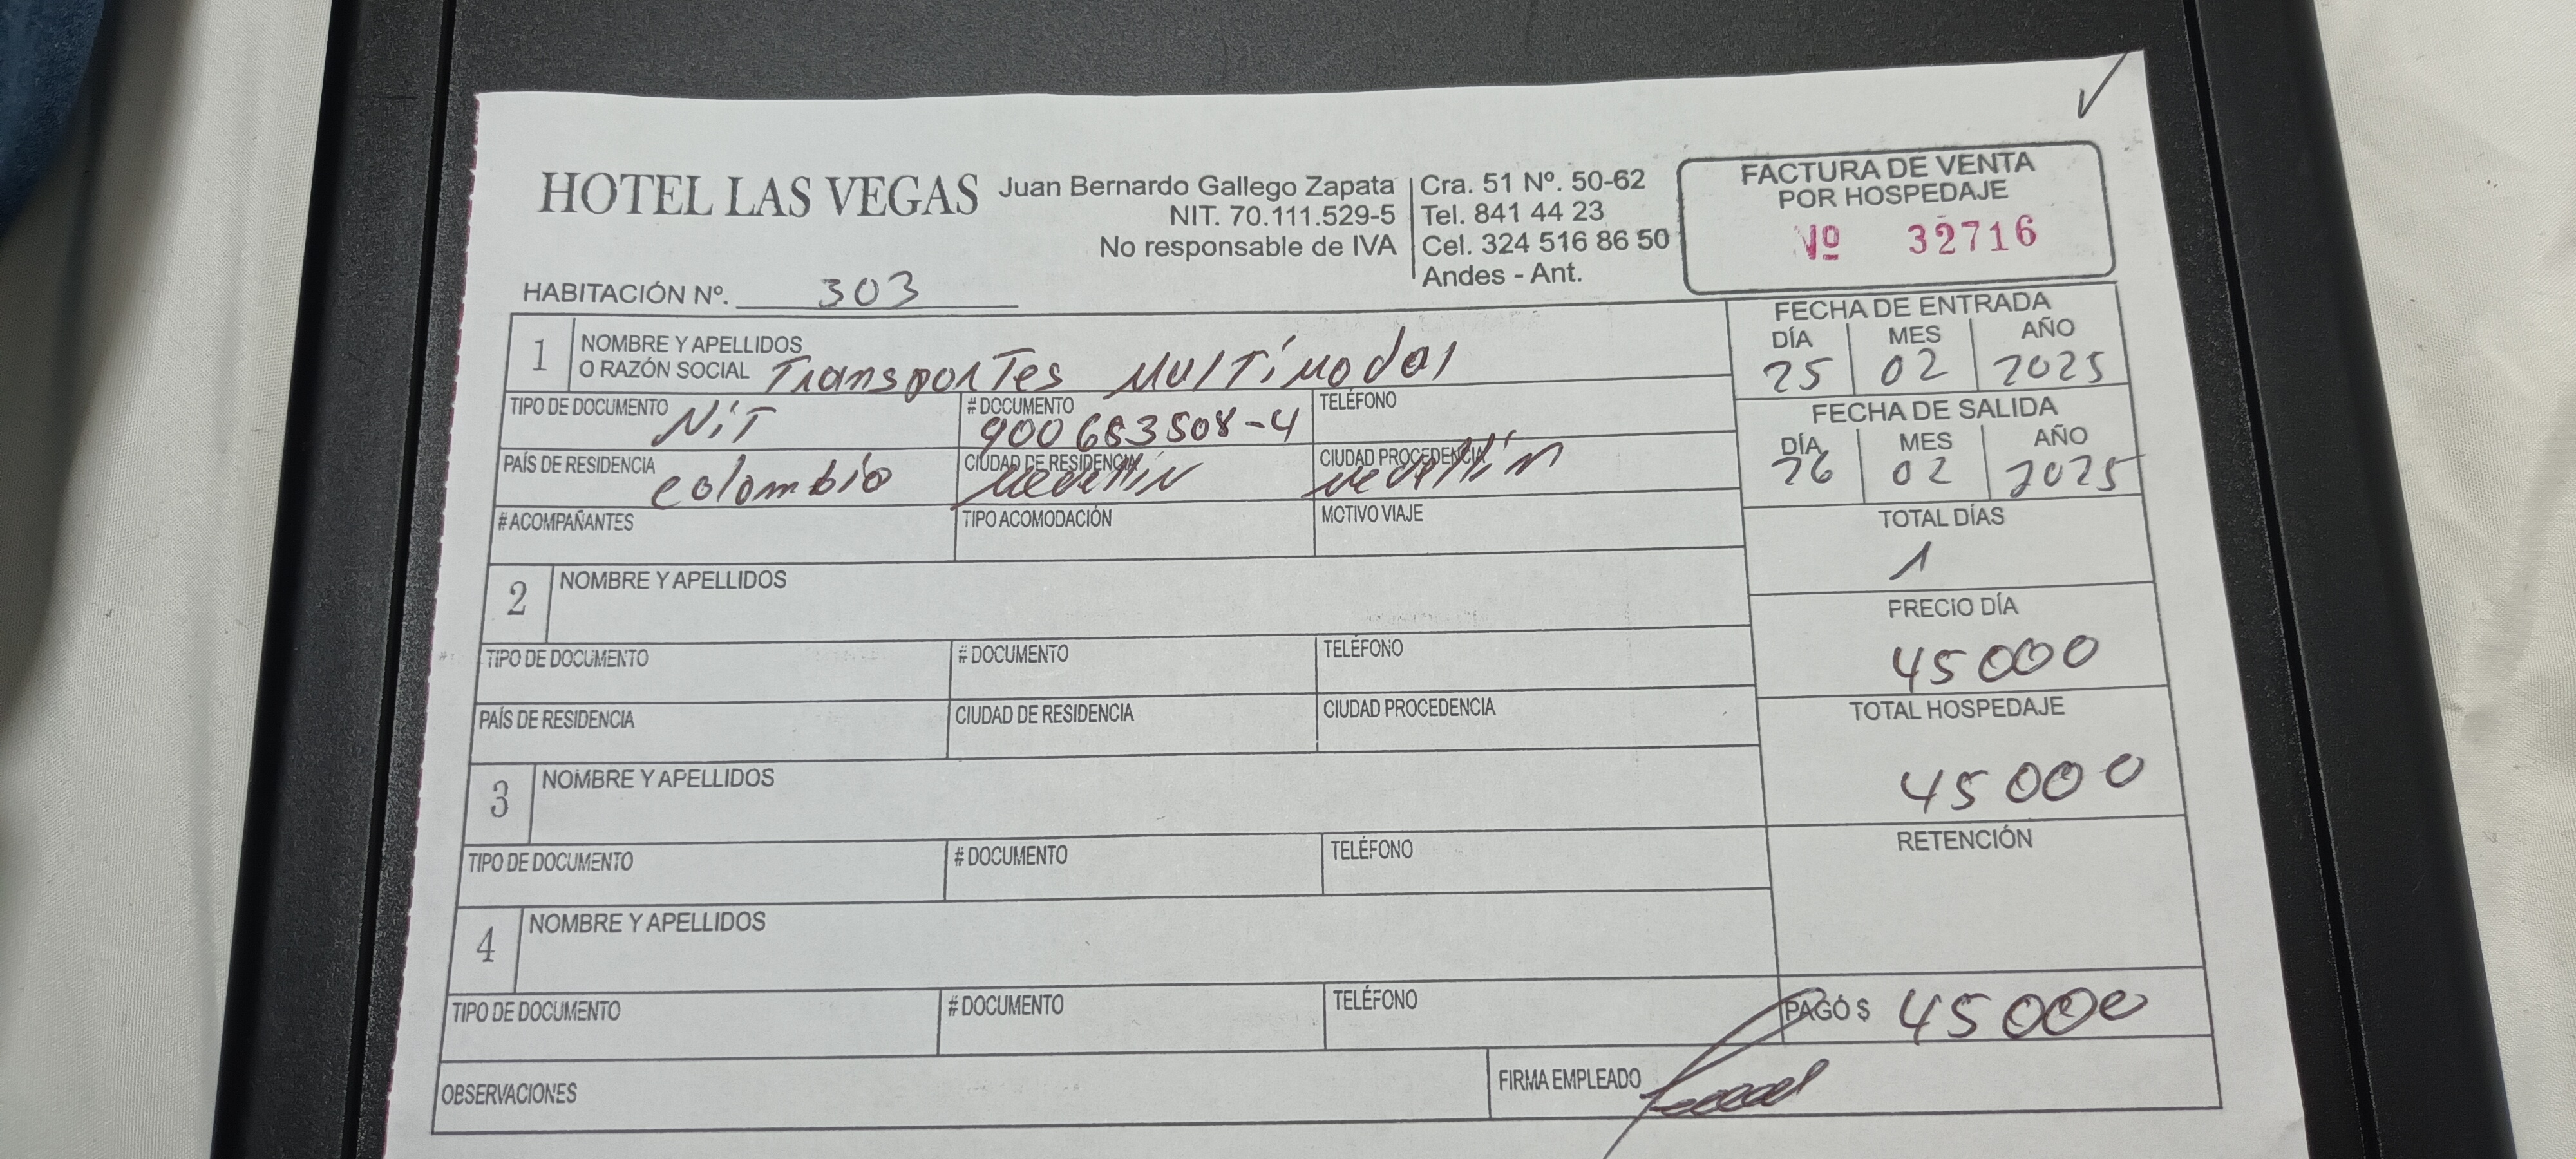 HOTEL LAS VEGAS
Juan Bernardo Gallego Zapata
NIT. 70.111.529-5
No responsable de IVA
Cra. 51 Nº. 50-62
Tel. 841 44 23
Cel. 324 516 86 50
Andes - Ant.
FACTURA DE VENTA
POR HOSPEDAJE
Nº 32716
HABITACIÓN Nº. 303
1 NOMBRE Y APELLIDOS
O RAZÓN SOCIAL Transportes Multimodal
TIPO DE DOCUMENTO NiT # DOCUMENTO 900683508-4 TELÉFONO
PAÍS DE RESIDENCIA colombia CIUDAD DE RESIDENCIA Medellín CIUDAD PROCEDENCIA Medellín
# ACOMPAÑANTES TIPO ACOMODACIÓN MOTIVO VIAJE
2 NOMBRE Y APELLIDOS
TIPO DE DOCUMENTO # DOCUMENTO TELÉFONO
PAÍS DE RESIDENCIA CIUDAD DE RESIDENCIA CIUDAD PROCEDENCIA
3 NOMBRE Y APELLIDOS
TIPO DE DOCUMENTO # DOCUMENTO TELÉFONO
4 NOMBRE Y APELLIDOS
TIPO DE DOCUMENTO # DOCUMENTO TELÉFONO
OBSERVACIONES
FIRMA EMPLEADO
FECHA DE ENTRADA
DÍA MES AÑO
25 02 2025
FECHA DE SALIDA
DÍA MES AÑO
26 02 2025
TOTAL DÍAS
1
PRECIO DÍA
45000
TOTAL HOSPEDAJE
45000
RETENCIÓN
PAGÓ $ 45000